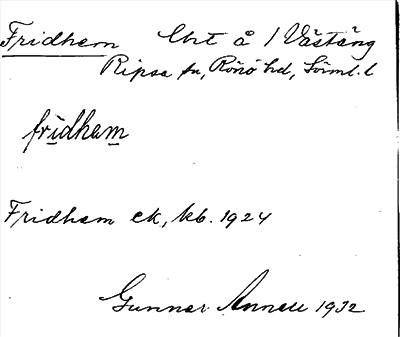 Fridhem Lht å 1 Västäng
Ripsa sn, Rönö hd, Sörml. l
fridham
Fridhem ek, kb. 1924
Gunnar Annell 1932